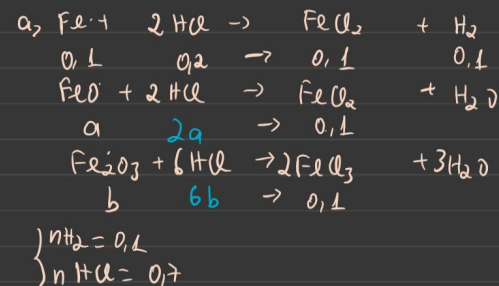 a, Fe + 2 HCl -> FeCl2 + H2
0,1 0,2 -> 0,1 0,1
FeO + 2 HCl -> FeCl2 + H2O
a 2a -> 0,1
Fe2O3 + 6HCl -> 2FeCl3 + 3H2O
b 6b -> 0,1
{ nH2 = 0,1
n HCl = 0,7